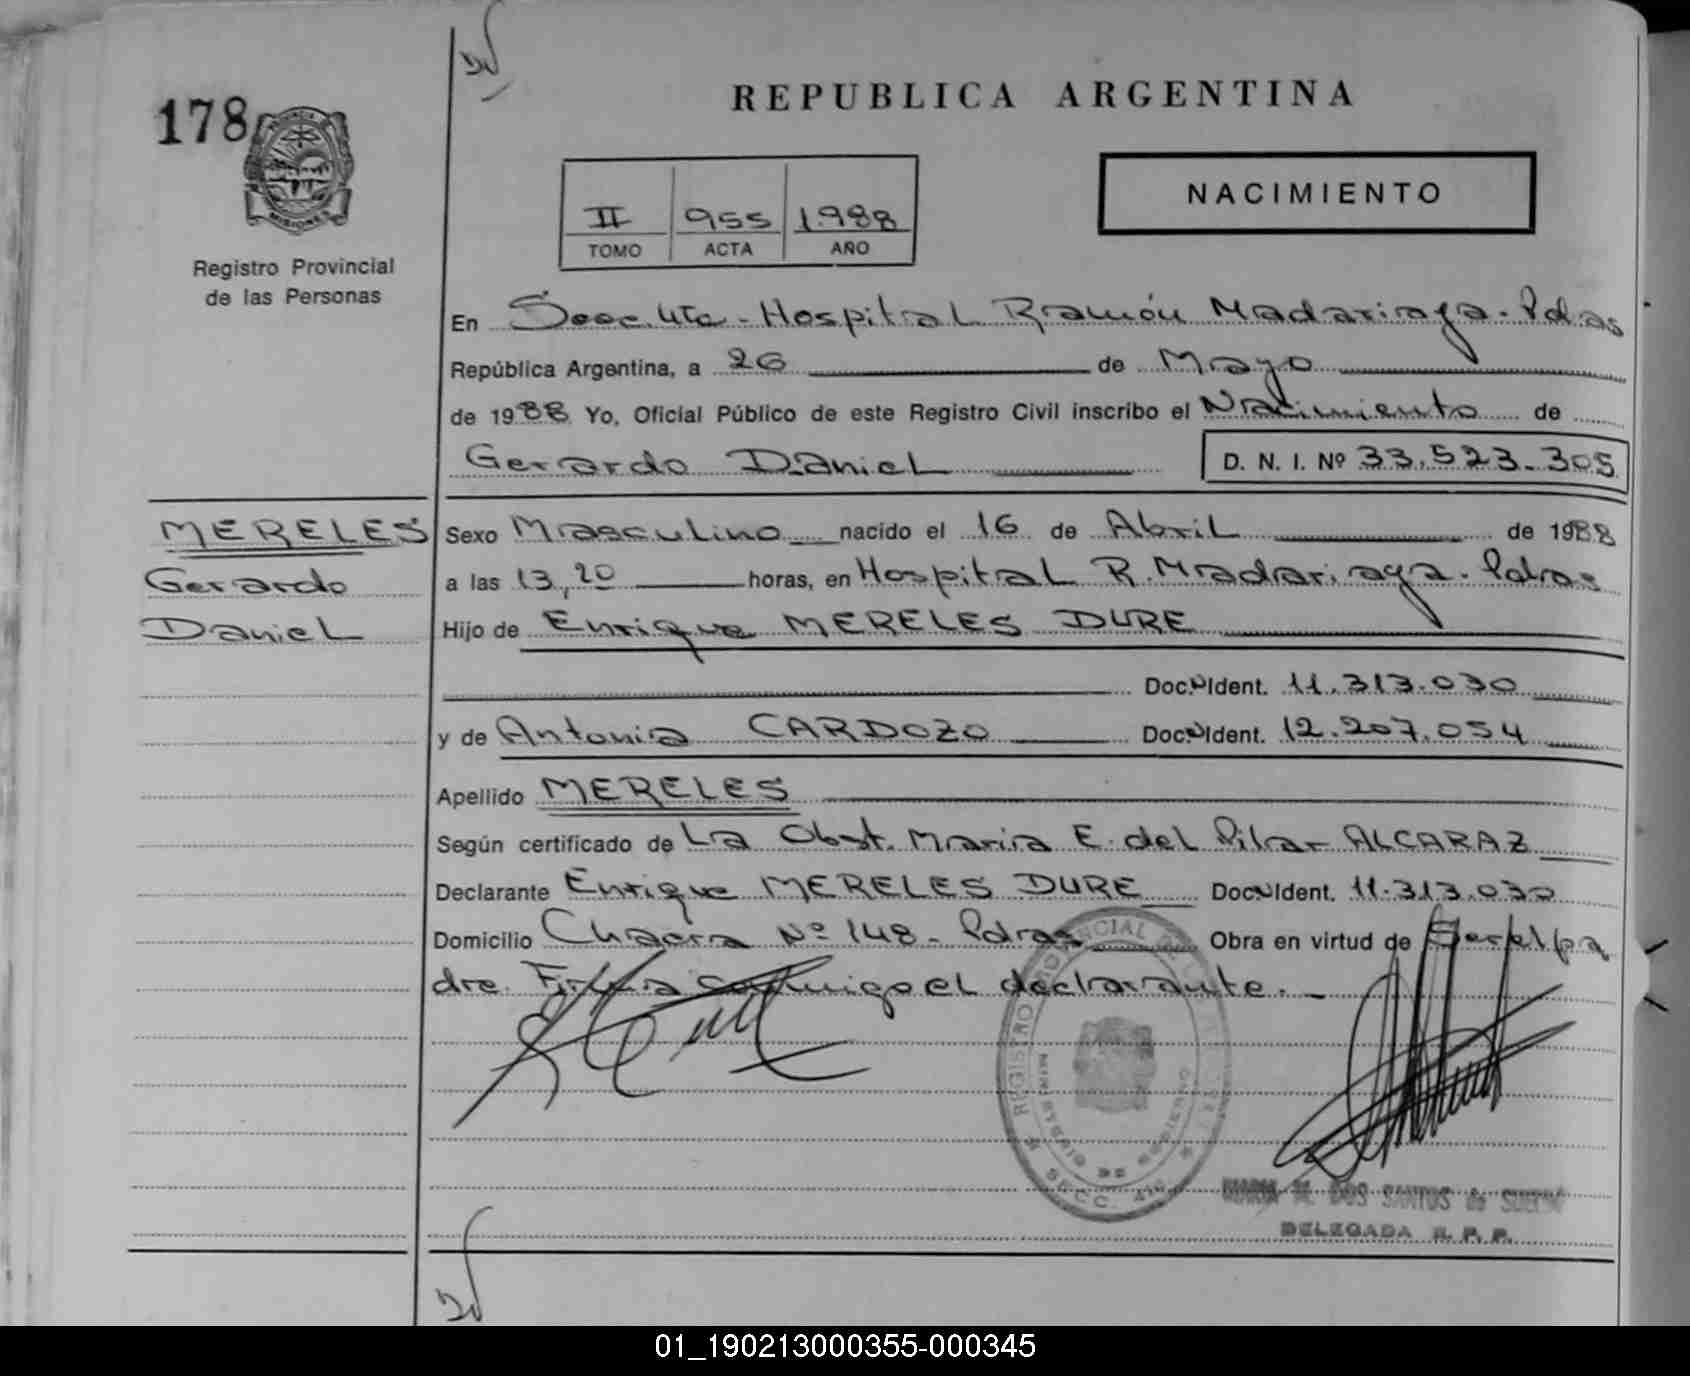 178
MISIONES
Registro Provincial
de las Personas
REPUBLICA ARGENTINA
NACIMIENTO
II 955 1.988
TOMO ACTA AÑO
En Secc. 4ta - Hospital Ramón Madariaga - Pdas
República Argentina, a 26 de Mayo
de 1988 Yo, Oficial Público de este Registro Civil inscribo el Nacimiento de
Gerardo Daniel D. N. I. Nº 33.523.305
MERELES
Gerardo
Daniel
Sexo Masculino nacido el 16 de Abril de 1988
a las 13,20 horas, en Hospital R. Madariaga - Pdas
Hijo de Enrique MERELES DURE
Doc. Ident. 11.313.030
y de Antonia CARDOZO Doc. Ident. 12.207.054
Apellido MERELES
Según certificado de La Obst. Maria E. del Pilar ALCARAZ
Declarante Enrique MERELES DURE Doc. Ident. 11.313.030
Domicilio Chacra Nº 148 - Pdas Obra en virtud de Ser el pa
dre. Firma conmigo el declarante. -
REGISTRO PROVINCIAL DE LAS
MINISTERIO DE GOBIERNO
SECC. 4ta
MARIA DOS SANTOS de
DELEGADA R. P. P.
01_190213000355-000345